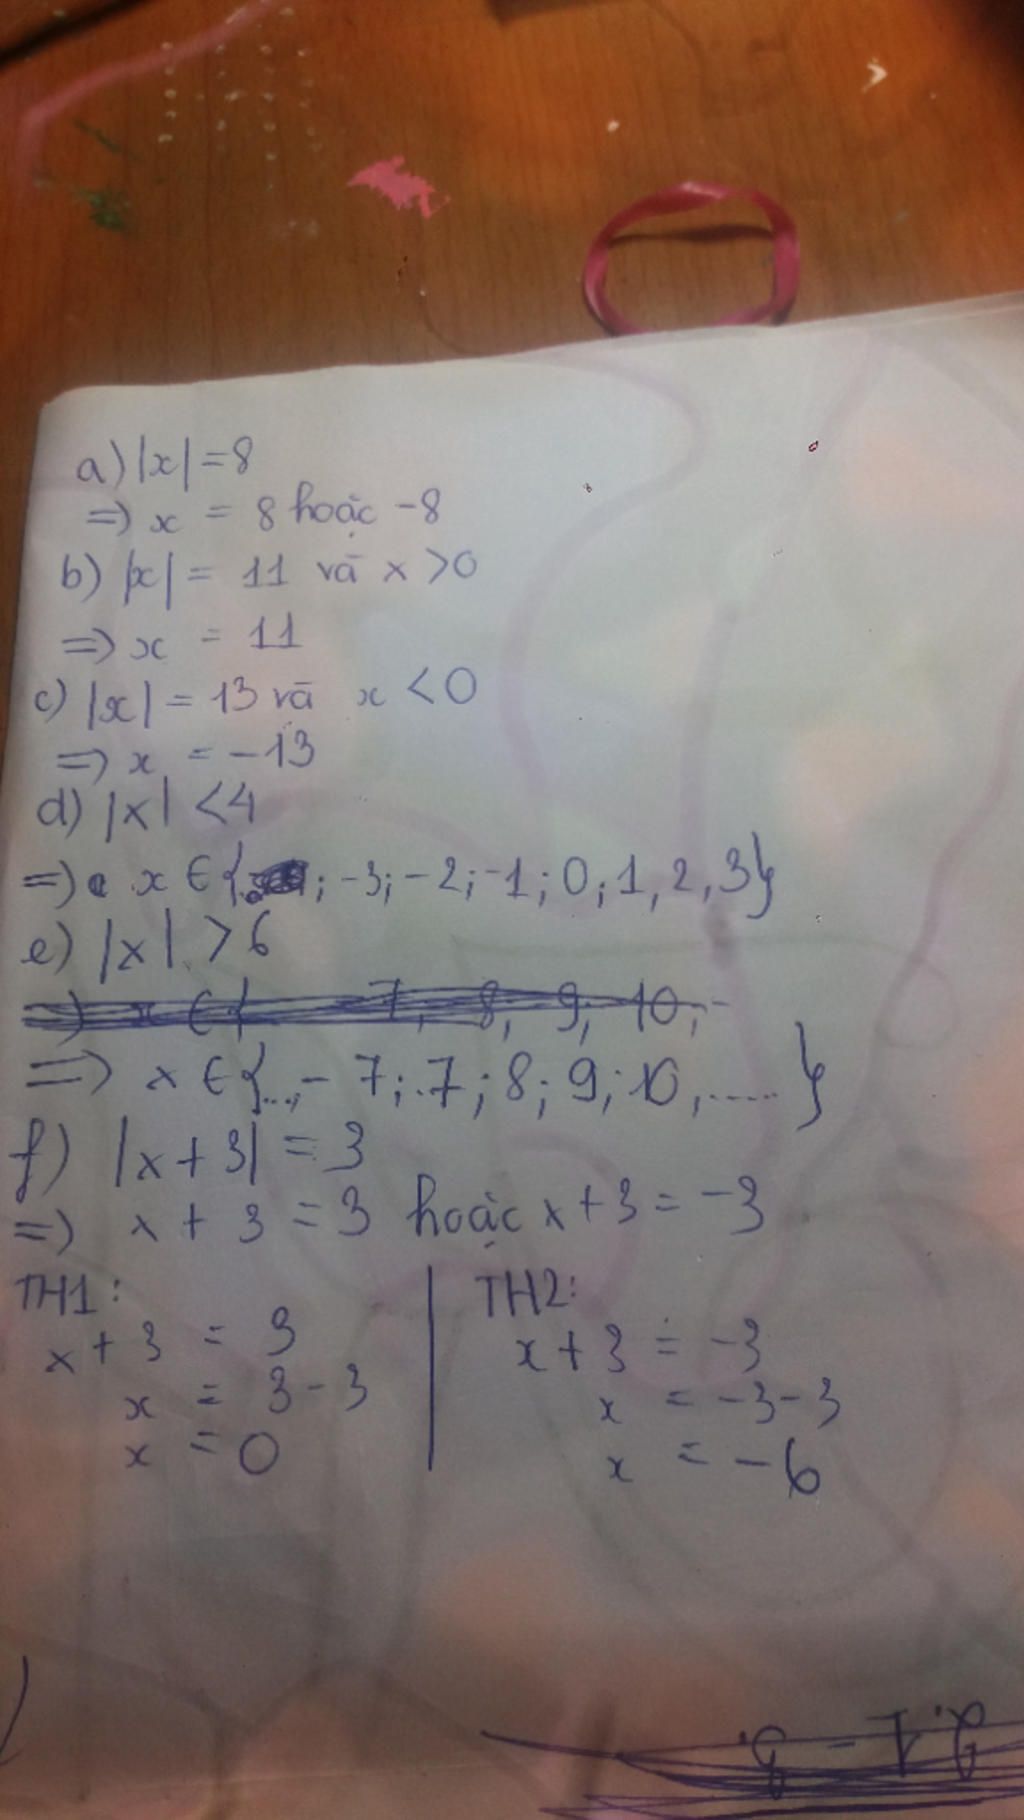 a) |x| = 8
=> x = 8 hoặc -8
b) |x| = 11 và x > 0
=> x = 11
c) |x| = 13 và x < 0
=> x = -13
d) |x| < 4
=> x ∈ {; -3; -2; -1; 0; 1, 2, 3}
e) |x| > 6
=> x ∈ { 7, 8, 9, 10, -
=> x ∈ {..., -7; 7; 8; 9; 10, .....}
f) |x + 3| = 3
=> x + 3 = 3 hoặc x + 3 = -3
TH1:
x + 3 = 3
x = 3 - 3
x = 0
TH2:
x + 3 = -3
x = -3 - 3
x = -6